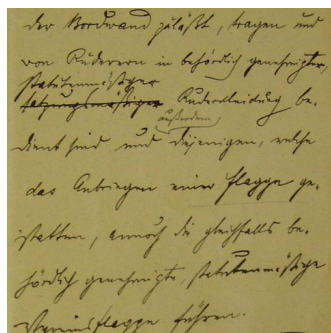 der Bordwand zuläßt, tragen und
von Ruderern in behördlich genehmigter,
statutenmäßiger
satzungsmäßiger Ruderkleidung be-
außerdem
dient sind und diejenigen, welche
das Anbringen einer Flagge ge-
statten, annoch die gleichfalls be-
hördlich genehmigte, statutenmäßige
Vereinsflagge führen.